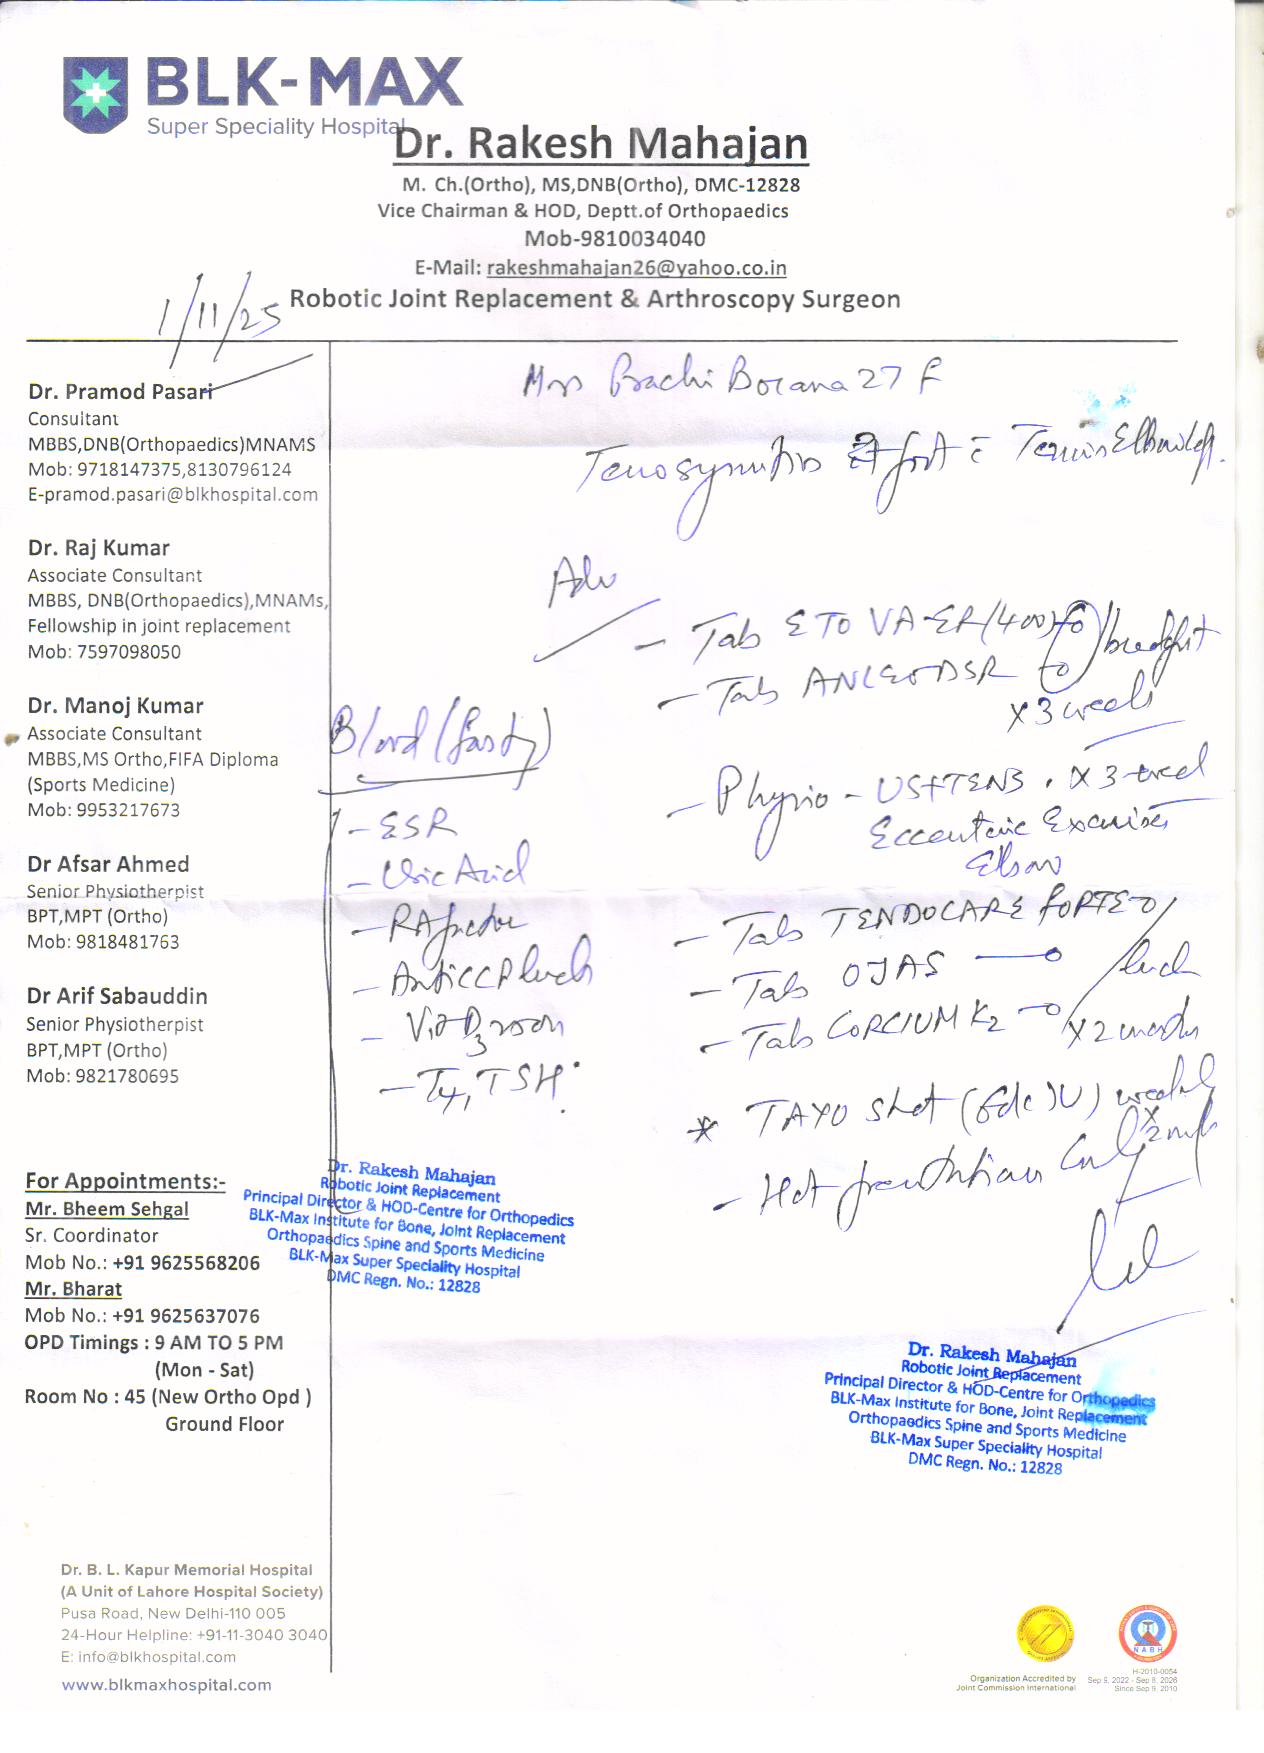 BLK-MAX
Super Speciality Hospital
Dr. Rakesh Mahajan
M. Ch.(Ortho), MS,DNB(Ortho), DMC-12828
Vice Chairman & HOD, Deptt.of Orthopaedics
Mob-9810034040
E-Mail: rakeshmahajan26@yahoo.co.in
Robotic Joint Replacement & Arthroscopy Surgeon
1/11/25
Dr. Pramod Pasari
Consultant
MBBS,DNB(Orthopaedics)MNAMS
Mob: 9718147375,8130796124
E-pramod.pasari@blkhospital.com
Dr. Raj Kumar
Associate Consultant
MBBS, DNB(Orthopaedics),MNAMs,
Fellowship in joint replacement
Mob: 7597098050
Dr. Manoj Kumar
Associate Consultant
MBBS,MS Ortho,FIFA Diploma
(Sports Medicine)
Mob: 9953217673
Dr Afsar Ahmed
Senior Physiotherpist
BPT,MPT (Ortho)
Mob: 9818481763
Dr Arif Sabauddin
Senior Physiotherpist
BPT,MPT (Ortho)
Mob: 9821780695
For Appointments:-
Mr. Bheem Sehgal
Sr. Coordinator
Mob No.: +91 9625568206
Mr. Bharat
Mob No.: +91 9625637076
OPD Timings : 9 AM TO 5 PM
(Mon - Sat)
Room No : 45 (New Ortho Opd )
Ground Floor
Borana 27 F
Tennis Elbow
Adv
- Tab ETOVA-ER (400)
- Tab DSR
x 3 weeks
- Physio - UST TENS . x 3 week
Eccentric Exercises
Elbow
- Tab TENDOCARE FORTE
- Tab OJAS
- Tab CORCIUM K2
x 2 months
* TAYO shot weekly
- Hot
Blood (fasting)
- ESR
- Uric Acid
- RA factor
- Anti CCP
- Vit D3
- T4, TSH
Dr. Rakesh Mahajan
Robotic Joint Replacement
Principal Director & HOD-Centre for Orthopedics
BLK-Max Institute for Bone, Joint Replacement
Orthopaedics Spine and Sports Medicine
BLK-Max Super Speciality Hospital
DMC Regn. No.: 12828
Dr. Rakesh Mahajan
Robotic Joint Replacement
Principal Director & HOD-Centre for Orthopedics
BLK-Max Institute for Bone, Joint Replacement
Orthopaedics Spine and Sports Medicine
BLK-Max Super Speciality Hospital
DMC Regn. No.: 12828
Dr. B. L. Kapur Memorial Hospital
(A Unit of Lahore Hospital Society)
Pusa Road, New Delhi-110 005
24-Hour Helpline: +91-11-3040 3040
E: info@blkhospital.com
www.blkmaxhospital.com
Organization Accredited by
Joint Commission International
NABH
H-2010-0054
Sep 9, 2022 - Sep 8, 2026
Since Sep 9, 2010